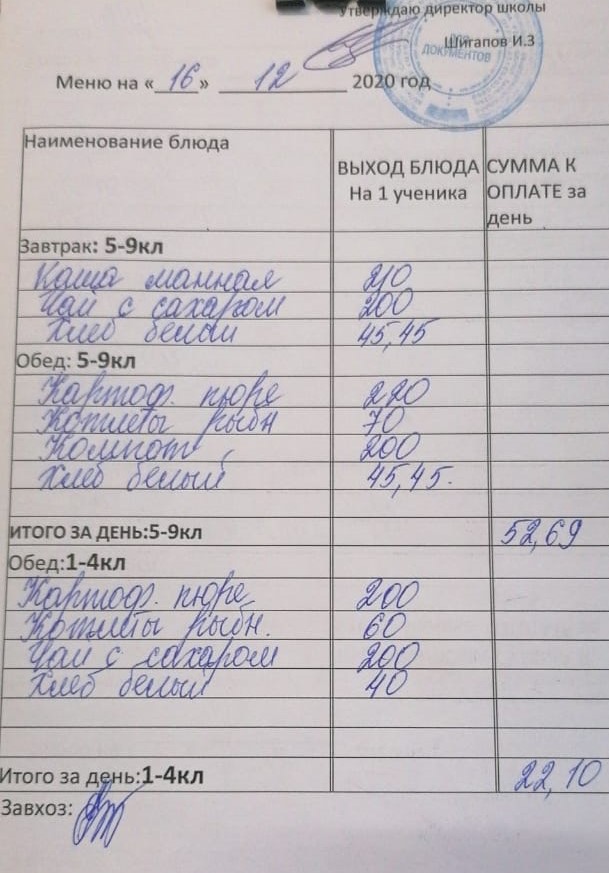 Утверждаю директор школы
Шигапов И.З
ДОКУМЕНТОВ
Меню на «16» 12 2020 год
Наименование блюда
ВЫХОД БЛЮДА На 1 ученика
СУММА К ОПЛАТЕ за день
Завтрак: 5-9кл
Каша манная 210
Чай с сахаром 200
Хлеб белый 45,45
Обед: 5-9кл
Картоф. пюре 220
Котлеты рыбн 70
Компот 200
Хлеб белый 45,45.
ИТОГО ЗА ДЕНЬ:5-9кл 52,69
Обед:1-4кл
Картоф. пюре 200
Котлеты рыбн. 60
Чай с сахаром 200
Хлеб белый 40
Итого за день:1-4кл 22,10
Завхоз: